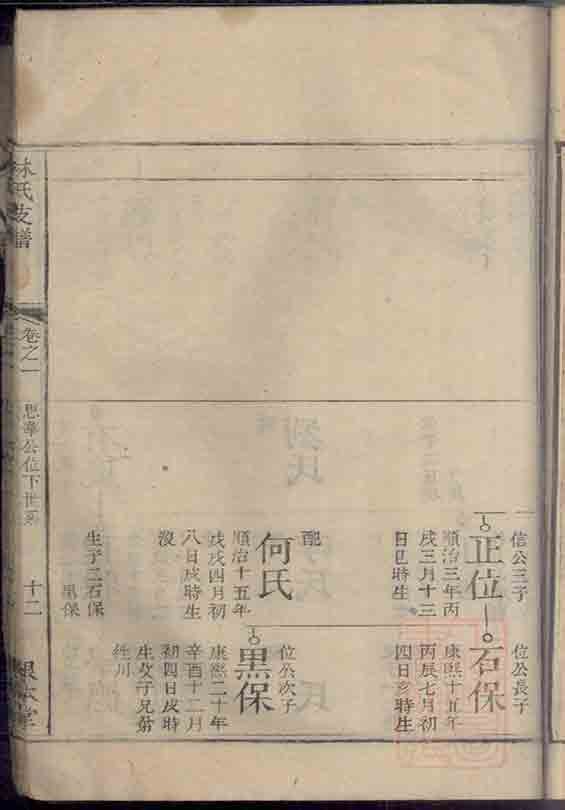 信公三子
正位
順治三年丙
戌三月十三
日巳時生
配
何氏
順治十五年
戊戌四月初
八日戌時生
沒
生子二石保
黑保
位公長子
石保
康熙十五年
丙辰七月初
四日亥時生
位公次子
黑保
康熙二十年
辛酉十二月
初四日戌時
生
林氏支譜
卷之一
思華公位下世系
十二